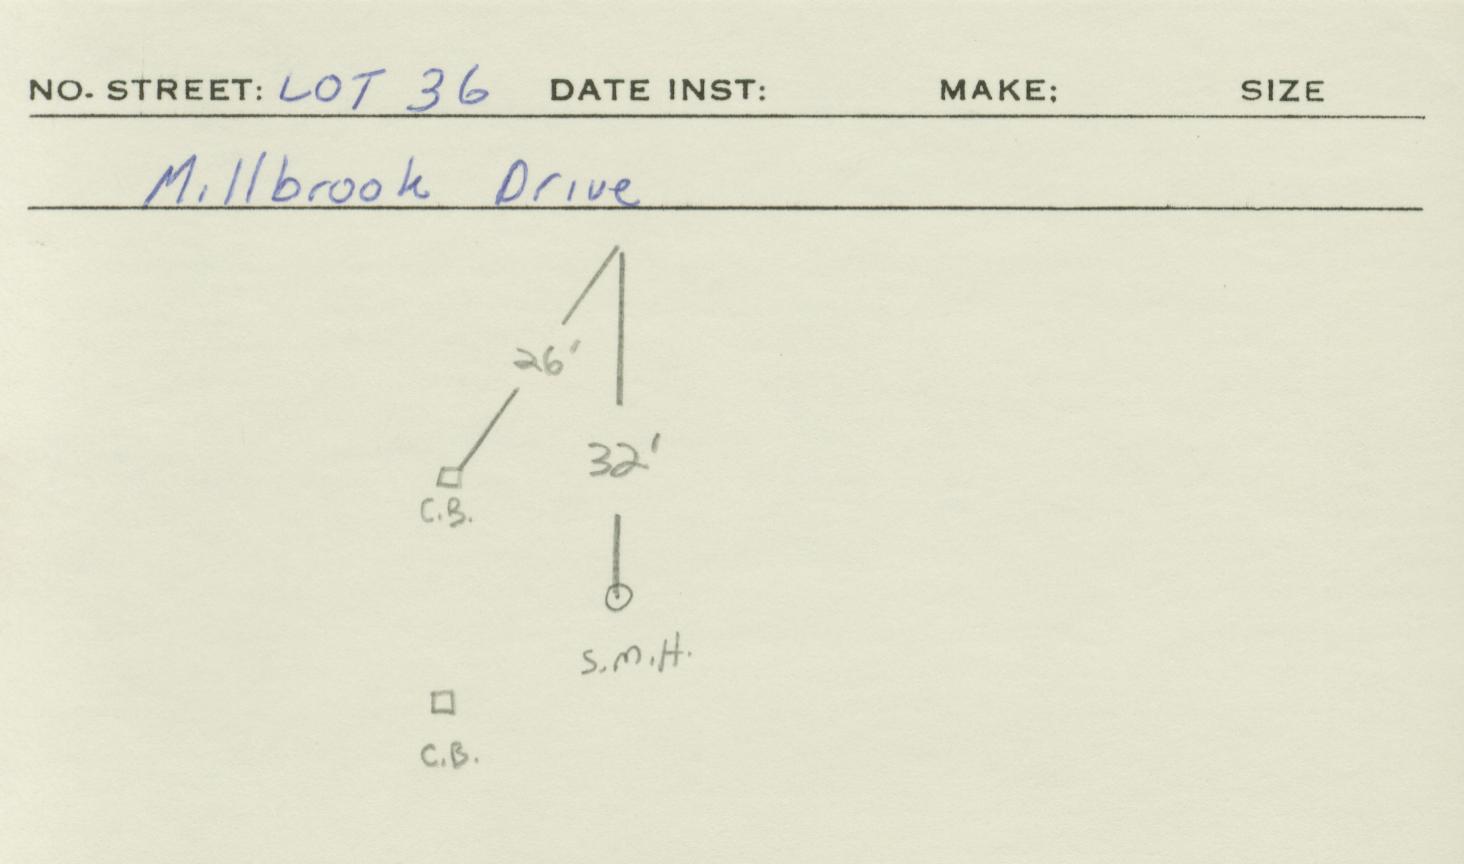 NO. STREET: LOT 36 DATE INST: MAKE: SIZE
Millbrook Drive
26'
32'
C.B.
S.M.H.
C.B.